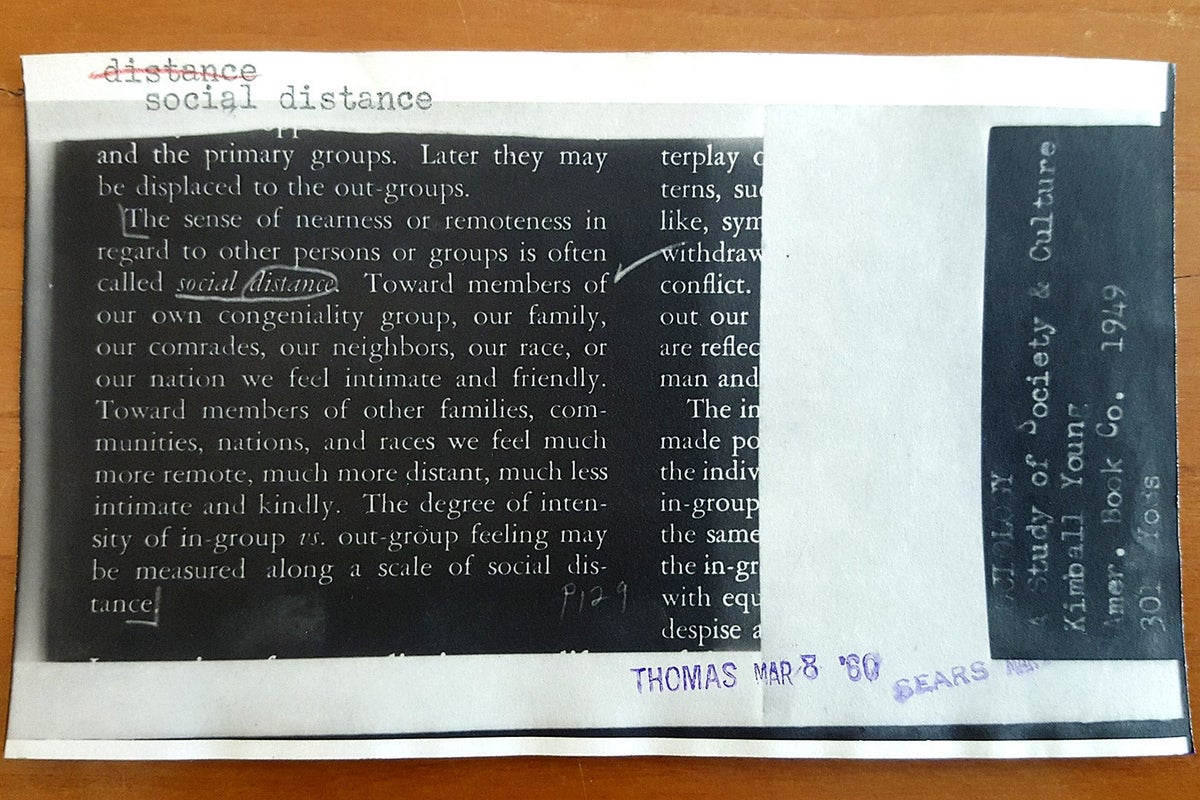 distance
social distance
and the primary groups. Later they may
be displaced to the out-groups.
The sense of nearness or remoteness in
regard to other persons or groups is often
called social distance. Toward members of
our own congeniality group, our family,
our comrades, our neighbors, our race, or
our nation we feel intimate and friendly.
Toward members of other families, com-
munities, nations, and races we feel much
more remote, much more distant, much less
intimate and kindly. The degree of inten-
sity of in-group vs. out-group feeling may
be measured along a scale of social dis-
tance.
P129
terplay
terns, suc
like, sym
withdraw
conflict.
out our
are reflec
man and
The in
made po
the indiv
in-group
the same
the in-gr
with equ
despise a
A Study of Society & Culture
Kimball Young
Amer. Book Co. 1949
301
THOMAS MAR 8 '60
SEARS